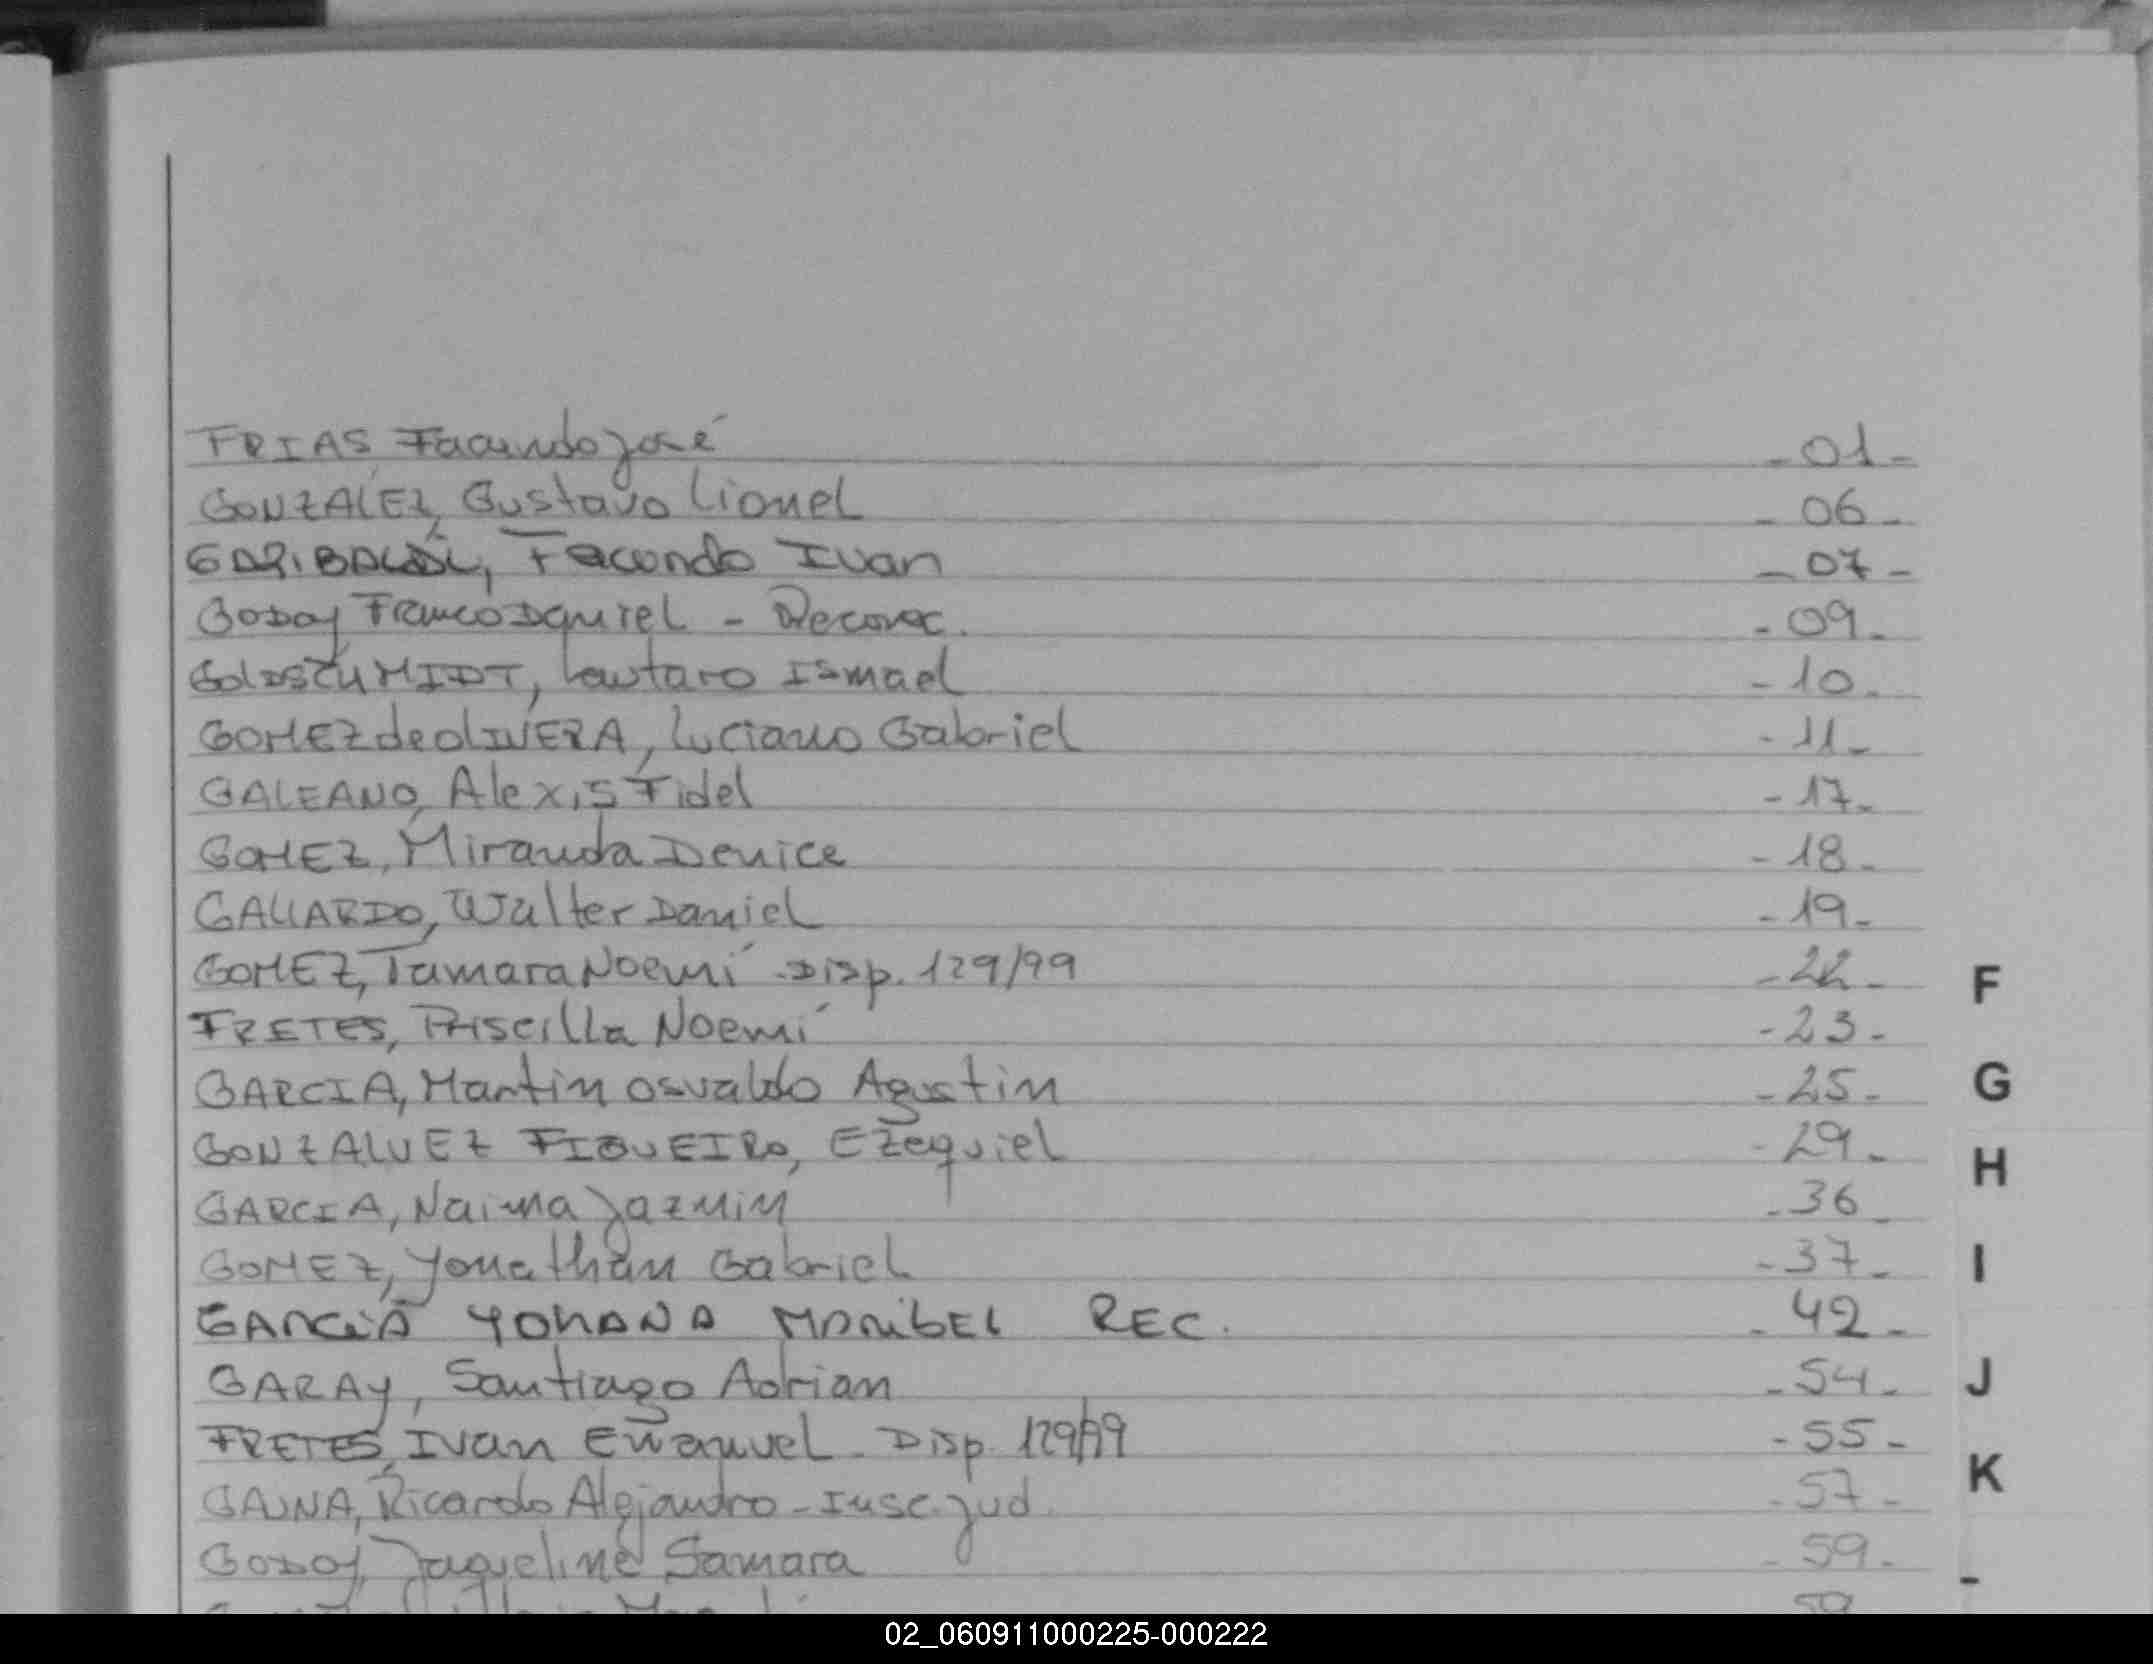 FRIAS Facundo José -01-
GONZALEZ, Gustavo Lionel -06-
GARIBALDI, Facundo Ivan -07-
GODOY Franco Daniel - Reconoc. -09-
GOLDSCHMIDT, Lautaro Ismael -10-
GOMEZ de OLIVERA, Luciano Gabriel -11-
GALEANO, Alexis Fidel -17-
GOMEZ, Miranda Denice -18-
GALLARDO, Walter Daniel -19-
GOMEZ, Tamara Noemí - Disp. 129/99 -22-
F
FRETES, Priscilla Noemí -23-
GARCIA, Martin Osvaldo Agustin -25-
G
GONZALVEZ FIGUEIRO, Ezequiel -29-
H
GARCIA, Naima Jazmin -36-
GOMEZ, Yonathan Gabriel -37-
I
GARCIA YOHANA MARIBEL REC. -42-
GARAY, Santiago Adrian -54-
J
FRETES, Ivan Emanuel - Disp. 129/99 -55-
GAUNA, Ricardo Alejandro - Insc. Jud. -57-
K
GODOY, Jaqueline Samara -59-
59
02_060911000225-000222